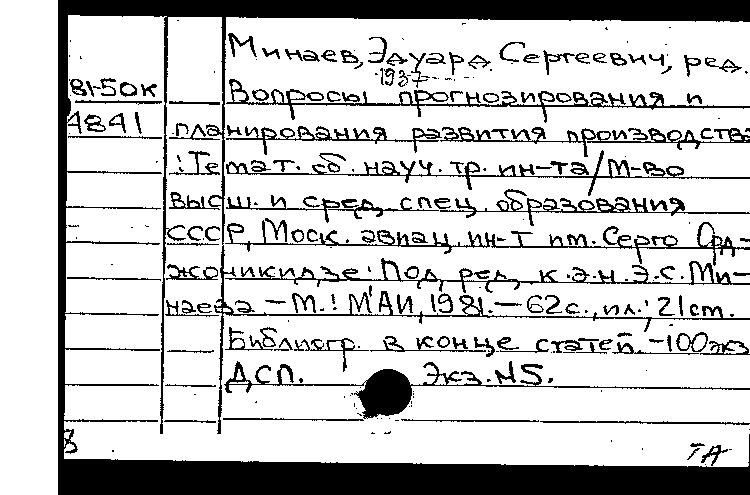 Минаев, Эдуард Сергеевич, ред.
1937-
81-50к Вопросы прогнозирования и
4841 планирования развития производства
: Темат. сб. науч. тр. ин-та / М-во
высш. и сред. спец. образования
СССР, Моск. авиац. ин-т им. Серго Орд-
жоникидзе; Под ред. к.э.н. Э.С. Ми-
наева. - М.: МАИ, 1981. - 62 с., ил.; 21 cm.
Библиогр. в конце статей. - 100 экз
ДСП. Экз. N5.
8 ТА